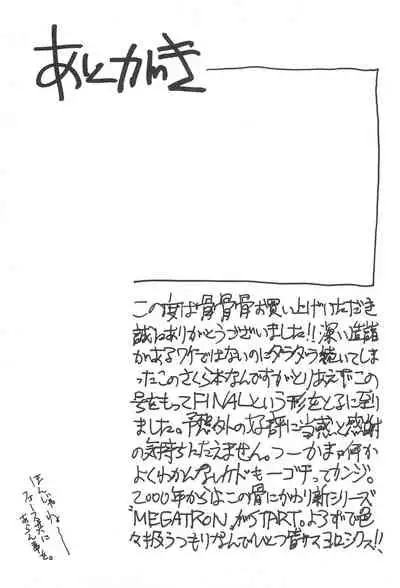 あとがき
この度は骨骨骨お買い上げいただき
誠にありがとうございました!!深い造詣
があるワケではないのにダラダラ続いてしま
ったこのさくら本なんですがとりあえずこの
号をもってFINALという形をとるに至り
ました。予想外の好評に当惑と感謝
の気持ちたえません。つーかまァ何か
よくわかんないケドも一ゴチってカンジ。
2000年からはこの骨にかわり新シリーズ
"MEGATRON"がSTART。よろずで色
々扱うつもりなんでひとつ皆サマヨロシクス!!
ほんじゃねー